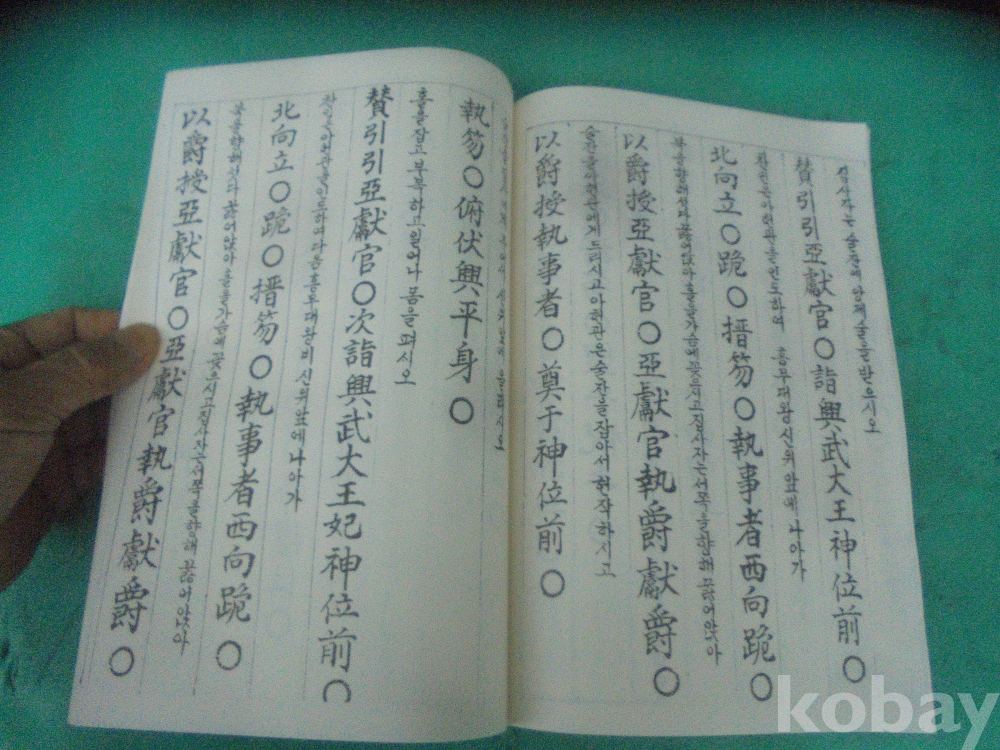 집사자는 술잔에 앙제술을 받으시오
贊引引亞獻官〇詣興武大王神位前〇
찬인은 아헌관을 인도하여 흥무대왕 신위 앞에 나아가
北向立〇跪〇搢笏〇執事者西向跪〇
북을 향해 섰다 꿇어앉아 홀을 가슴에 꽂으시고 집사자는 서쪽을 향해 꿇어 앉아
以爵授亞獻官〇亞獻官執爵獻爵〇
술잔을 아헌관에게 드리시고 아헌관은 술잔을 잡아서 헌작하시고
以爵授執事者〇奠于神位前〇
執笏〇俯伏興平身〇
홀을 잡고 부복하고 일어나 몸을 펴시오
贊引引亞獻官〇次詣興武大王妃神位前〇
찬인은 아헌관을 인도하여 다음 흥무대왕비 신위 앞에 나아가
北向立〇跪〇搢笏〇執事者西向跪〇
북을 향해 섰다 꿇어앉아 홀을 가슴에 꽂으시고 집사자는 서쪽을 향해 꿇어 앉아
以爵授亞獻官〇亞獻官執爵獻爵〇
kobay